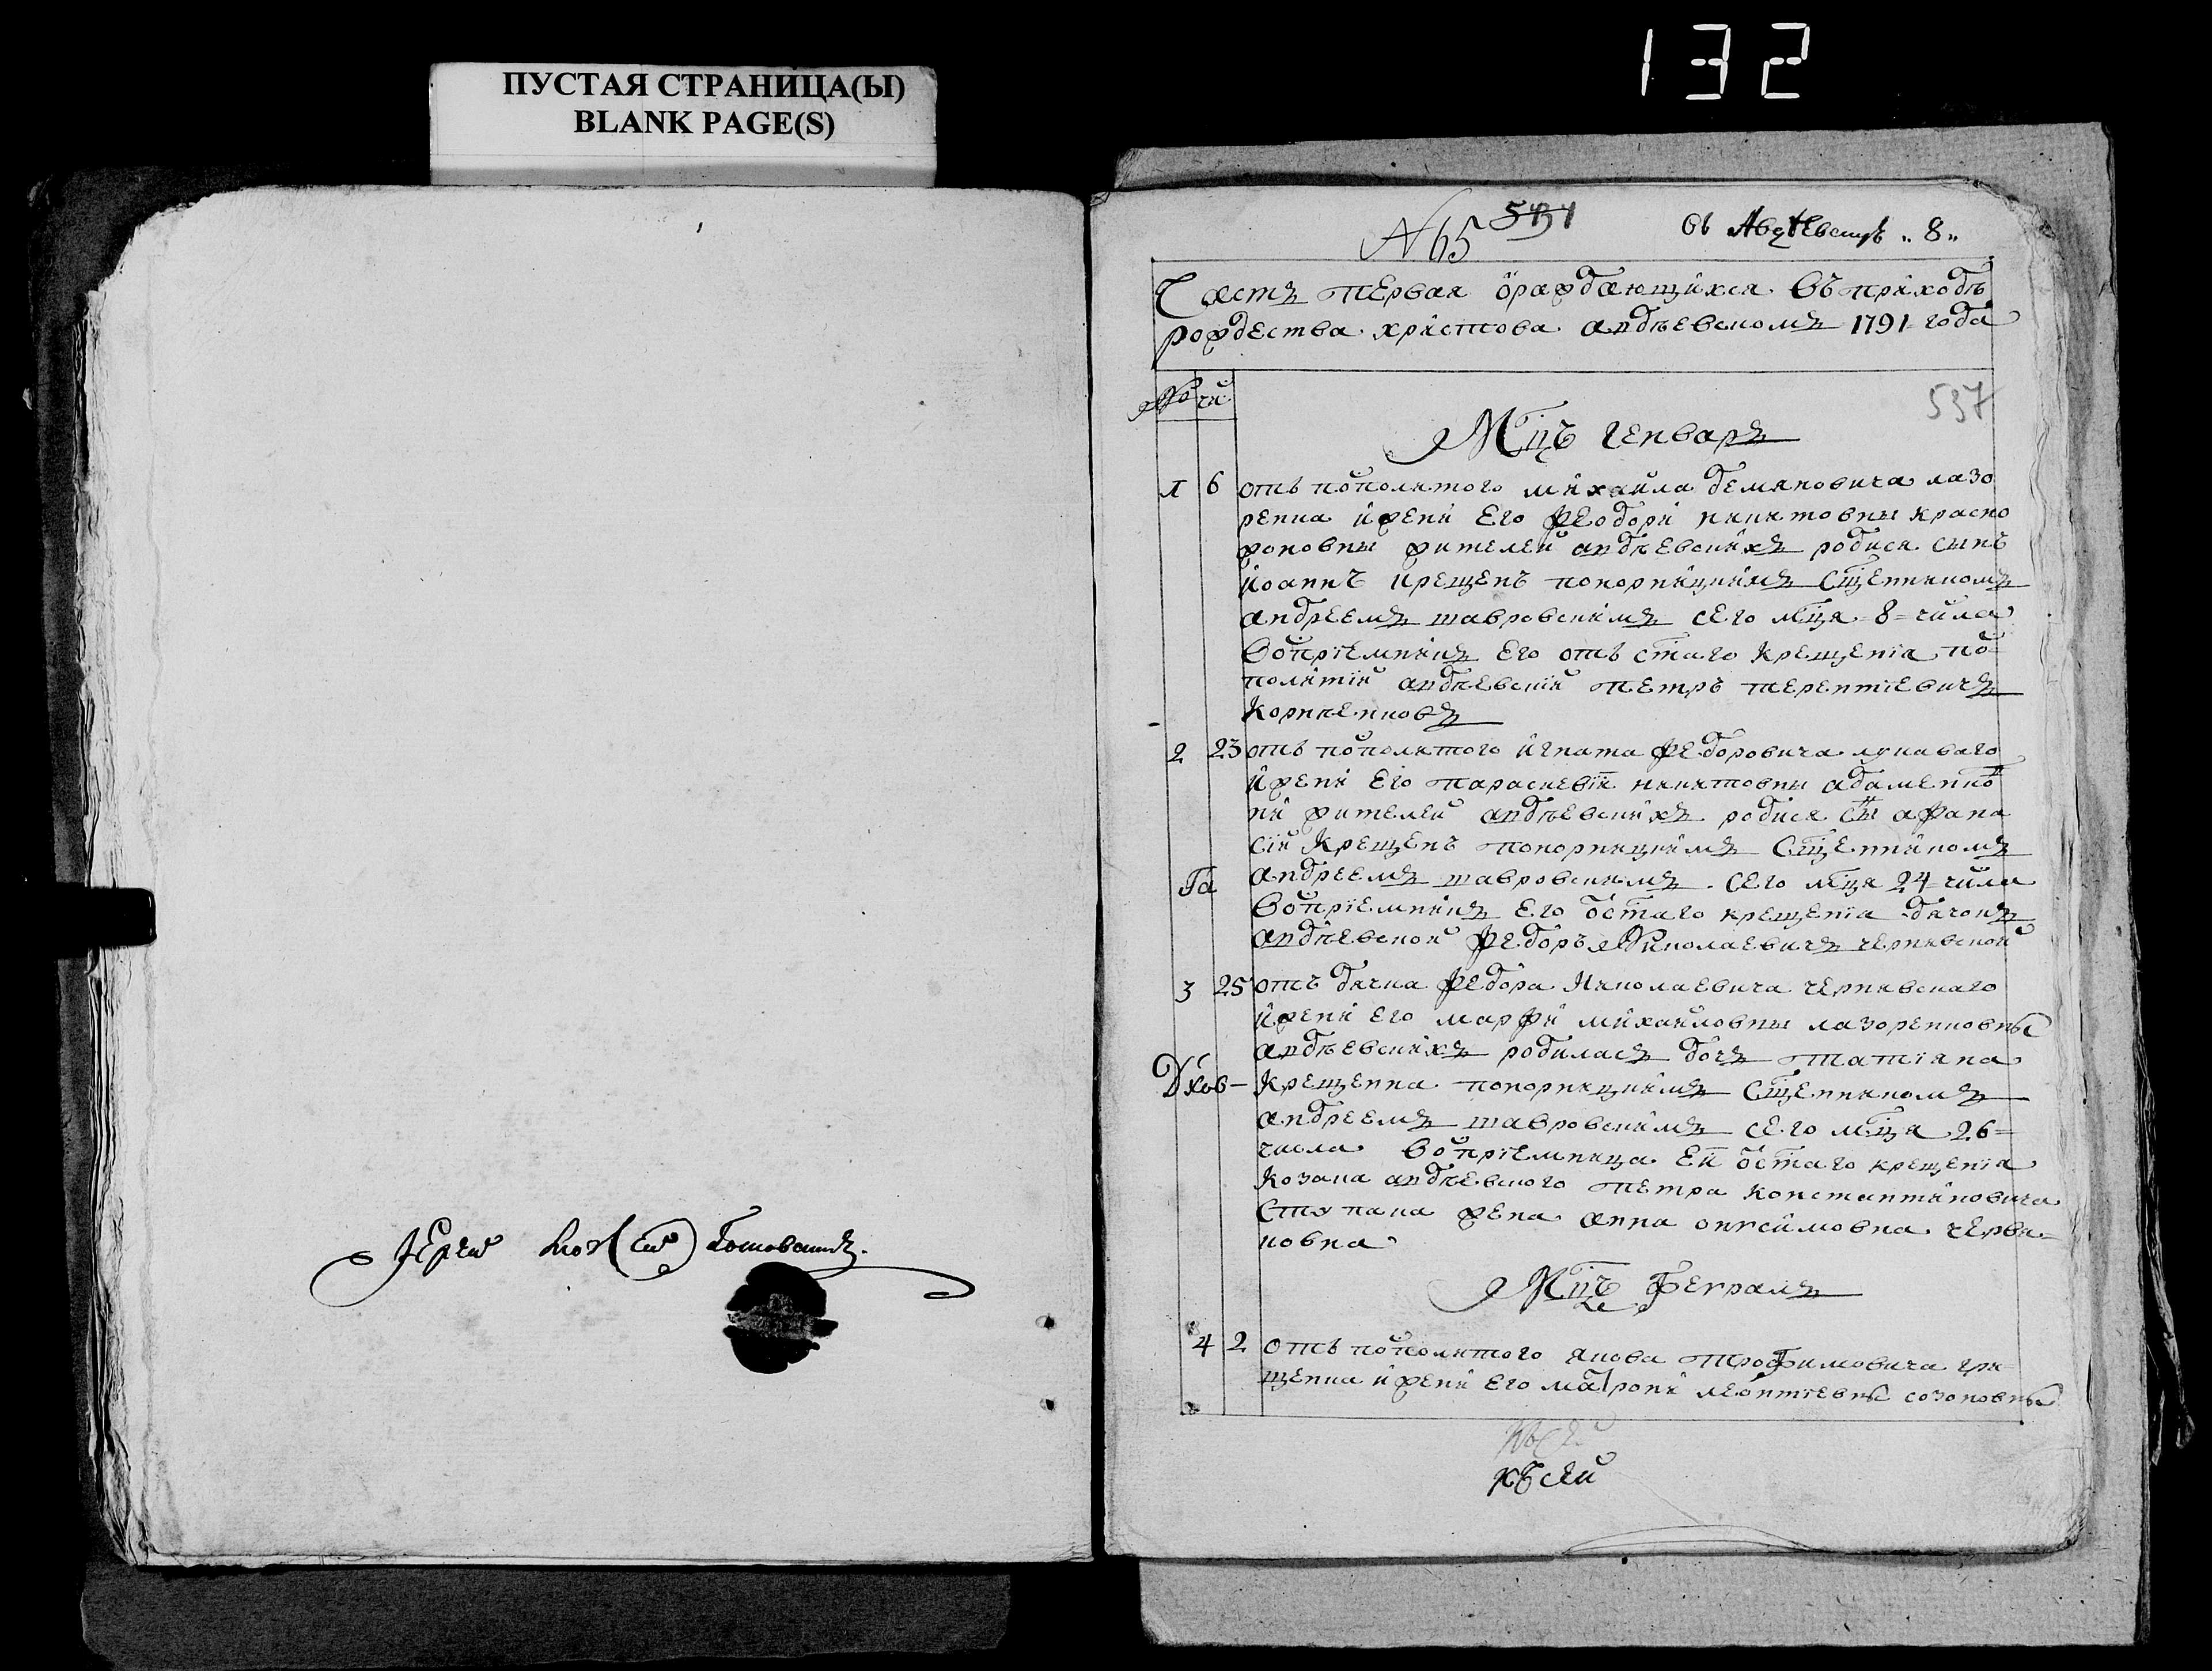 132
ПУСТАЯ СТРАНИЦА(Ы)
BLANK PAGE(S)
Іерей
№ 65 5431
въ „8„
Часть первая о раждающихся въ приходѣ
рождества христова авдѣевскомъ 1791 года
№ чи
537
Мцъ генварь
1 6 отъ посполитого михаила демяновича лазо
ренка и жени его феодори никитовны красно
жоновны жителей авдѣевскихъ родися сынъ
иоаннъ крещенъ понорницкимъ сщенникомъ
андреемъ тавровскимъ сего мсца 8 числа
восприемникъ его отъ стаго крещенїа по
сполитїй авдѣевскїй петръ терентїевичъ
корнѣенковъ
2 23 отъ посполитого игната федоровича лукаваго
и жени его параскевїи никитовны адаменко
ви жителей авдѣевскихъ родися снъ афана
сїй крещенъ понорницкимъ сщенникомъ
андреемъ тавровскимъ сего мсца 24 числа
восприемникъ его от стаго крещенїа дячокъ
авдѣевской федоръ николаевичъ чернявской
3 25 отъ дячка федора николаевича чернявскаго
и жени его марфи михайловны лазоренковны
авдѣевскихъ родилась дочь татїяна
крещенна понорницкимъ сщенникомъ
андреемъ тавровскимъ сего мсца 26
числа восприемница ей от стаго крещенїа
козака авдѣевского петра константиновича
ступака жена анна онисимовна червя
ковна
Мцъ февраль
4 2 отъ посполитого якова трофимовича гри
щенка и жени его матрони леонтїевны созоновны
къ сей